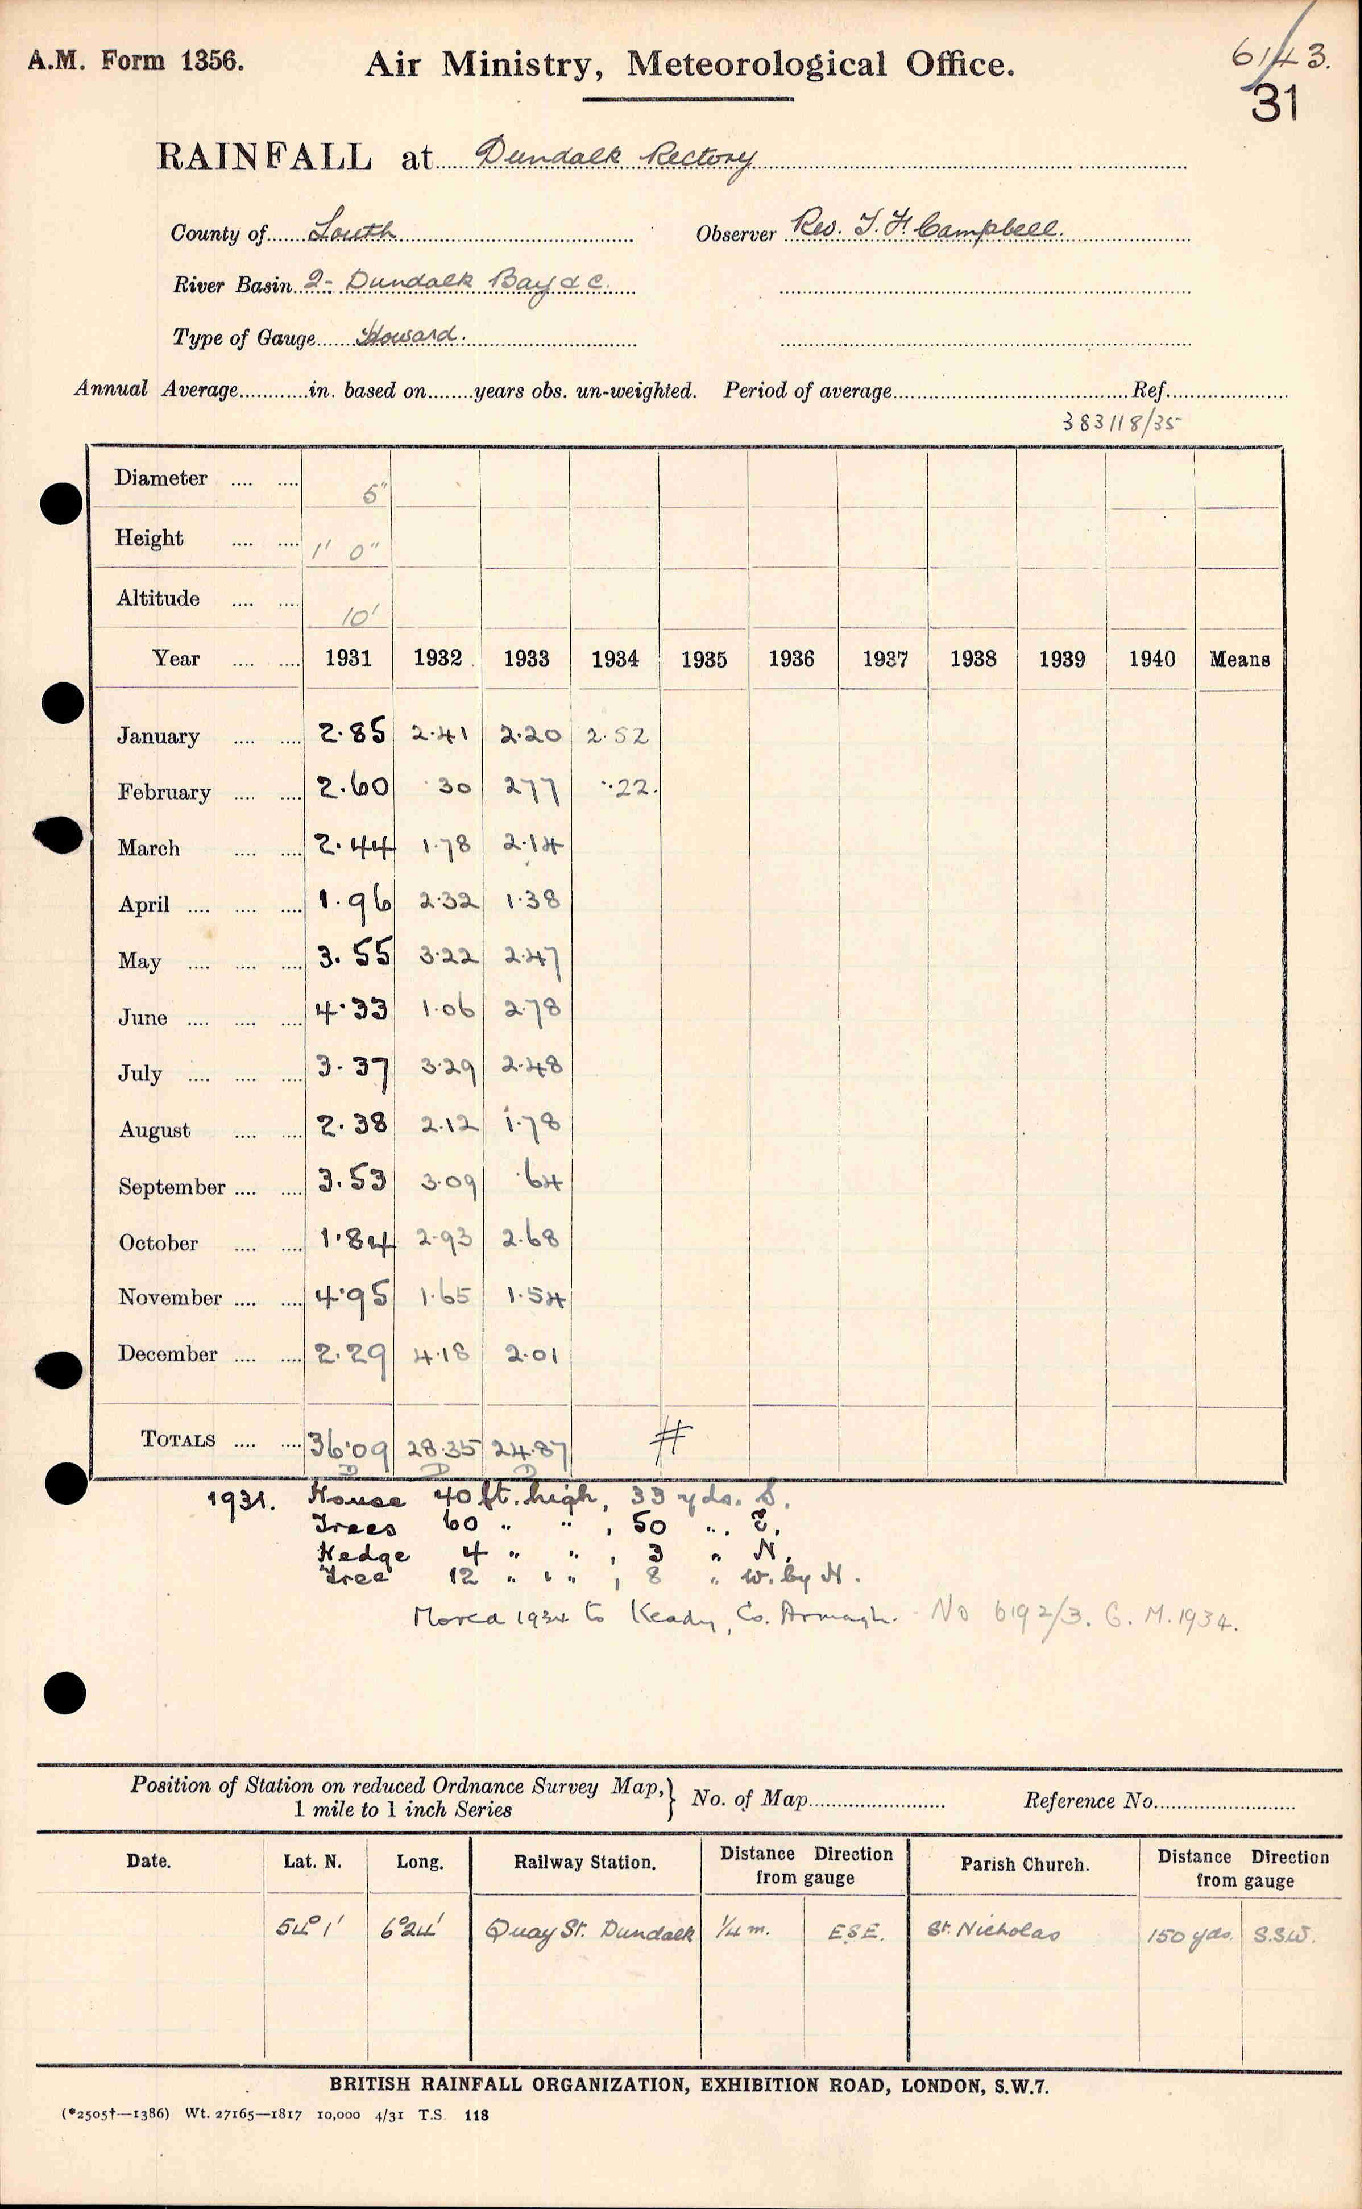 A.M. Form 1356. Air Ministry, Meteorological Office. 6143.
31
RAINFALL at Dundalk Rectory
County of Louth Observer Rev. T. H. Campbell.
River Basin 2- Dundalk Bay &c.
Type of Gauge Howard.
Annual Average............in. based on........years obs. un-weighted. Period of average............Ref............
383118/35
Diameter .... .... 5"
Height .... .... 1' 0"
Altitude .... .... 10'
Year .... .... 1931 1932 1933 1934 1935 1936 1937 1938 1939 1940 Means
January .... .... 2.85 2.41 2.20 2.52
February .... .... 2.60 .30 2.77 .22.
March .... .... 2.44 1.78 2.14
April .... .... .... 1.96 2.32 1.38
May .... .... .... 3.55 3.22 2.47
June .... .... .... 4.33 1.06 2.78
July .... .... .... 3.37 3.29 2.48
August .... .... 2.38 2.12 1.78
September .... .... 3.53 3.09 .64
October .... .... 1.84 2.93 2.68
November .... .... 4.95 1.65 1.54
December .... .... 2.29 4.18 2.01
TOTALS .... .... 36.09 28.35 24.87 #
D D D
1931. House 40 ft. high, 33 yds. S.
Trees 60 " " , 50 " . E.
Hedge 4 " " , 3 " N.
Tree 12 " " " , 8 " W. by N.
Moved 1934 to Keady, Co. Armagh. No 6192/3. G. M. 1934.
Position of Station on reduced Ordnance Survey Map,} No. of Map............ Reference No............
1 mile to 1 inch Series
Date. Lat. N. Long. Railway Station. Distance Direction from gauge Parish Church. Distance Direction from gauge
54° 1' 6° 24' Quay St. Dundalk 1/4 m. E.S.E. St. Nicholas 150 yds. S.S.W.
BRITISH RAINFALL ORGANIZATION, EXHIBITION ROAD, LONDON, S.W.7.
(*2505†—1386) Wt. 27165—1817 10,000 4/31 T.S. 118